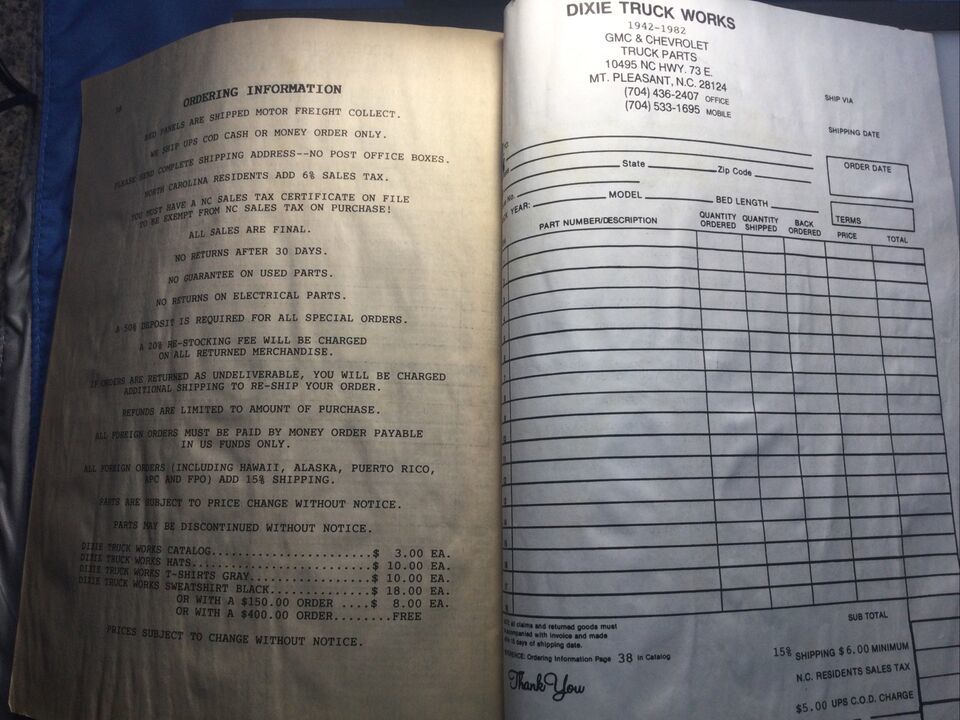 38
ORDERING INFORMATION
BED PANELS ARE SHIPPED MOTOR FREIGHT COLLECT.
WE SHIP UPS COD CASH OR MONEY ORDER ONLY.
PLEASE SEND COMPLETE SHIPPING ADDRESS--NO POST OFFICE BOXES.
NORTH CAROLINA RESIDENTS ADD 6% SALES TAX.
YOU MUST HAVE A NC SALES TAX CERTIFICATE ON FILE
TO BE EXEMPT FROM NC SALES TAX ON PURCHASE!
ALL SALES ARE FINAL.
NO RETURNS AFTER 30 DAYS.
NO GUARANTEE ON USED PARTS.
NO RETURNS ON ELECTRICAL PARTS.
A 50% DEPOSIT IS REQUIRED FOR ALL SPECIAL ORDERS.
A 20% RE-STOCKING FEE WILL BE CHARGED
ON ALL RETURNED MERCHANDISE.
IF ORDERS ARE RETURNED AS UNDELIVERABLE, YOU WILL BE CHARGED
ADDITIONAL SHIPPING TO RE-SHIP YOUR ORDER.
REFUNDS ARE LIMITED TO AMOUNT OF PURCHASE.
ALL FOREIGN ORDERS MUST BE PAID BY MONEY ORDER PAYABLE
IN US FUNDS ONLY.
ALL FOREIGN ORDERS (INCLUDING HAWAII, ALASKA, PUERTO RICO,
APC AND FPO) ADD 15% SHIPPING.
PARTS ARE SUBJECT TO PRICE CHANGE WITHOUT NOTICE.
PARTS MAY BE DISCONTINUED WITHOUT NOTICE.
DIXIE TRUCK WORKS CATALOG.......................$ 3.00 EA.
DIXIE TRUCK WORKS HATS..........................$ 10.00 EA.
DIXIE TRUCK WORKS T-SHIRTS GRAY.................$ 10.00 EA.
DIXIE TRUCK WORKS SWEATSHIRT BLACK..............$ 18.00 EA.
OR WITH A $150.00 ORDER ....$ 8.00 EA.
OR WITH A $400.00 ORDER........FREE
PRICES SUBJECT TO CHANGE WITHOUT NOTICE.
DIXIE TRUCK WORKS
1942-1982
GMC & CHEVROLET
TRUCK PARTS
10495 NC HWY. 73 E.
MT. PLEASANT, N.C. 28124
(704) 436-2407 OFFICE
(704) 533-1695 MOBILE
SHIP VIA
SHIPPING DATE
ORDER DATE
State Zip Code
No.
YEAR: MODEL BED LENGTH
TERMS
PART NUMBER/DESCRIPTION QUANTITY ORDERED QUANTITY SHIPPED BACK ORDERED PRICE TOTAL
SUB TOTAL
all claims and returned goods must
accompanied with invoice and made
days of shipping date.
REFERENCE: Ordering Information Page 38 in Catalog
Thank You
15% SHIPPING $6.00 MINIMUM
N.C. RESIDENTS SALES TAX
$5.00 UPS C.O.D. CHARGE